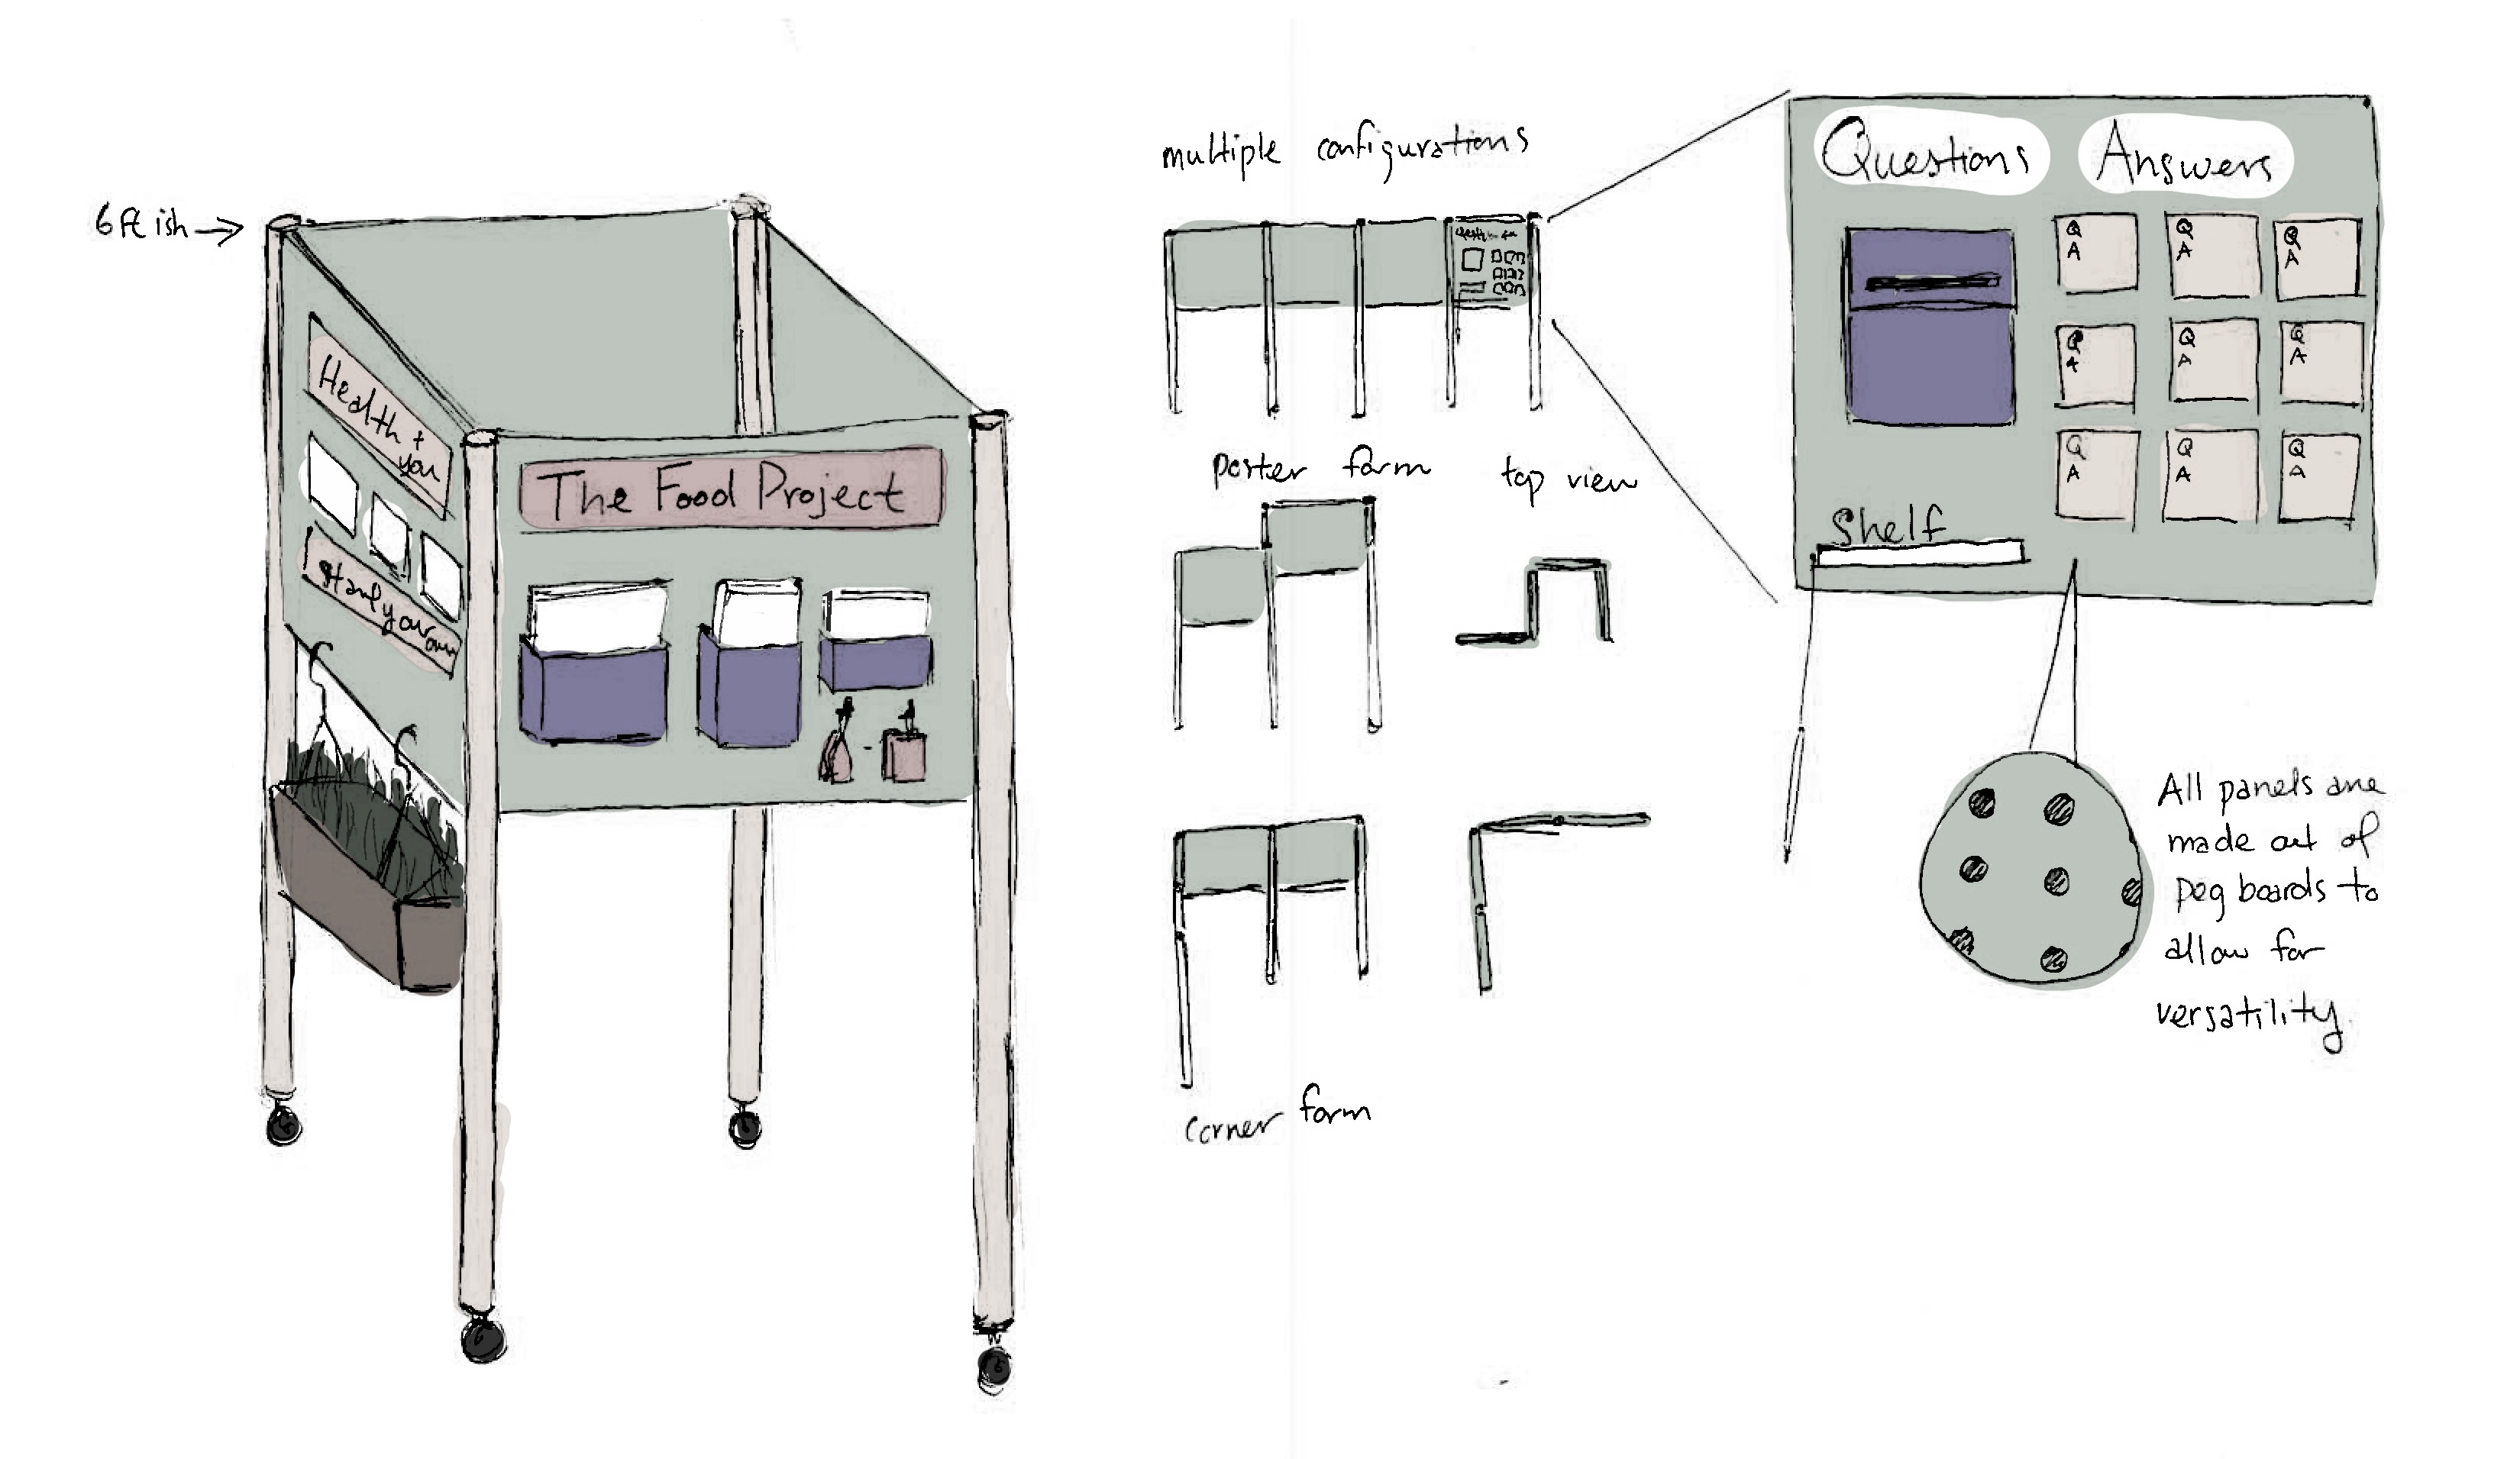 6 ft ish →
Health +
you
Start your
own
The Food Project
multiple configurations
poster form
top view
corner form
Questions Answers
Q Q Q
A A A
Q Q Q
A A A
Q Q Q
A A A
Shelf
All panels are
made out of
peg boards to
allow for
versatility.